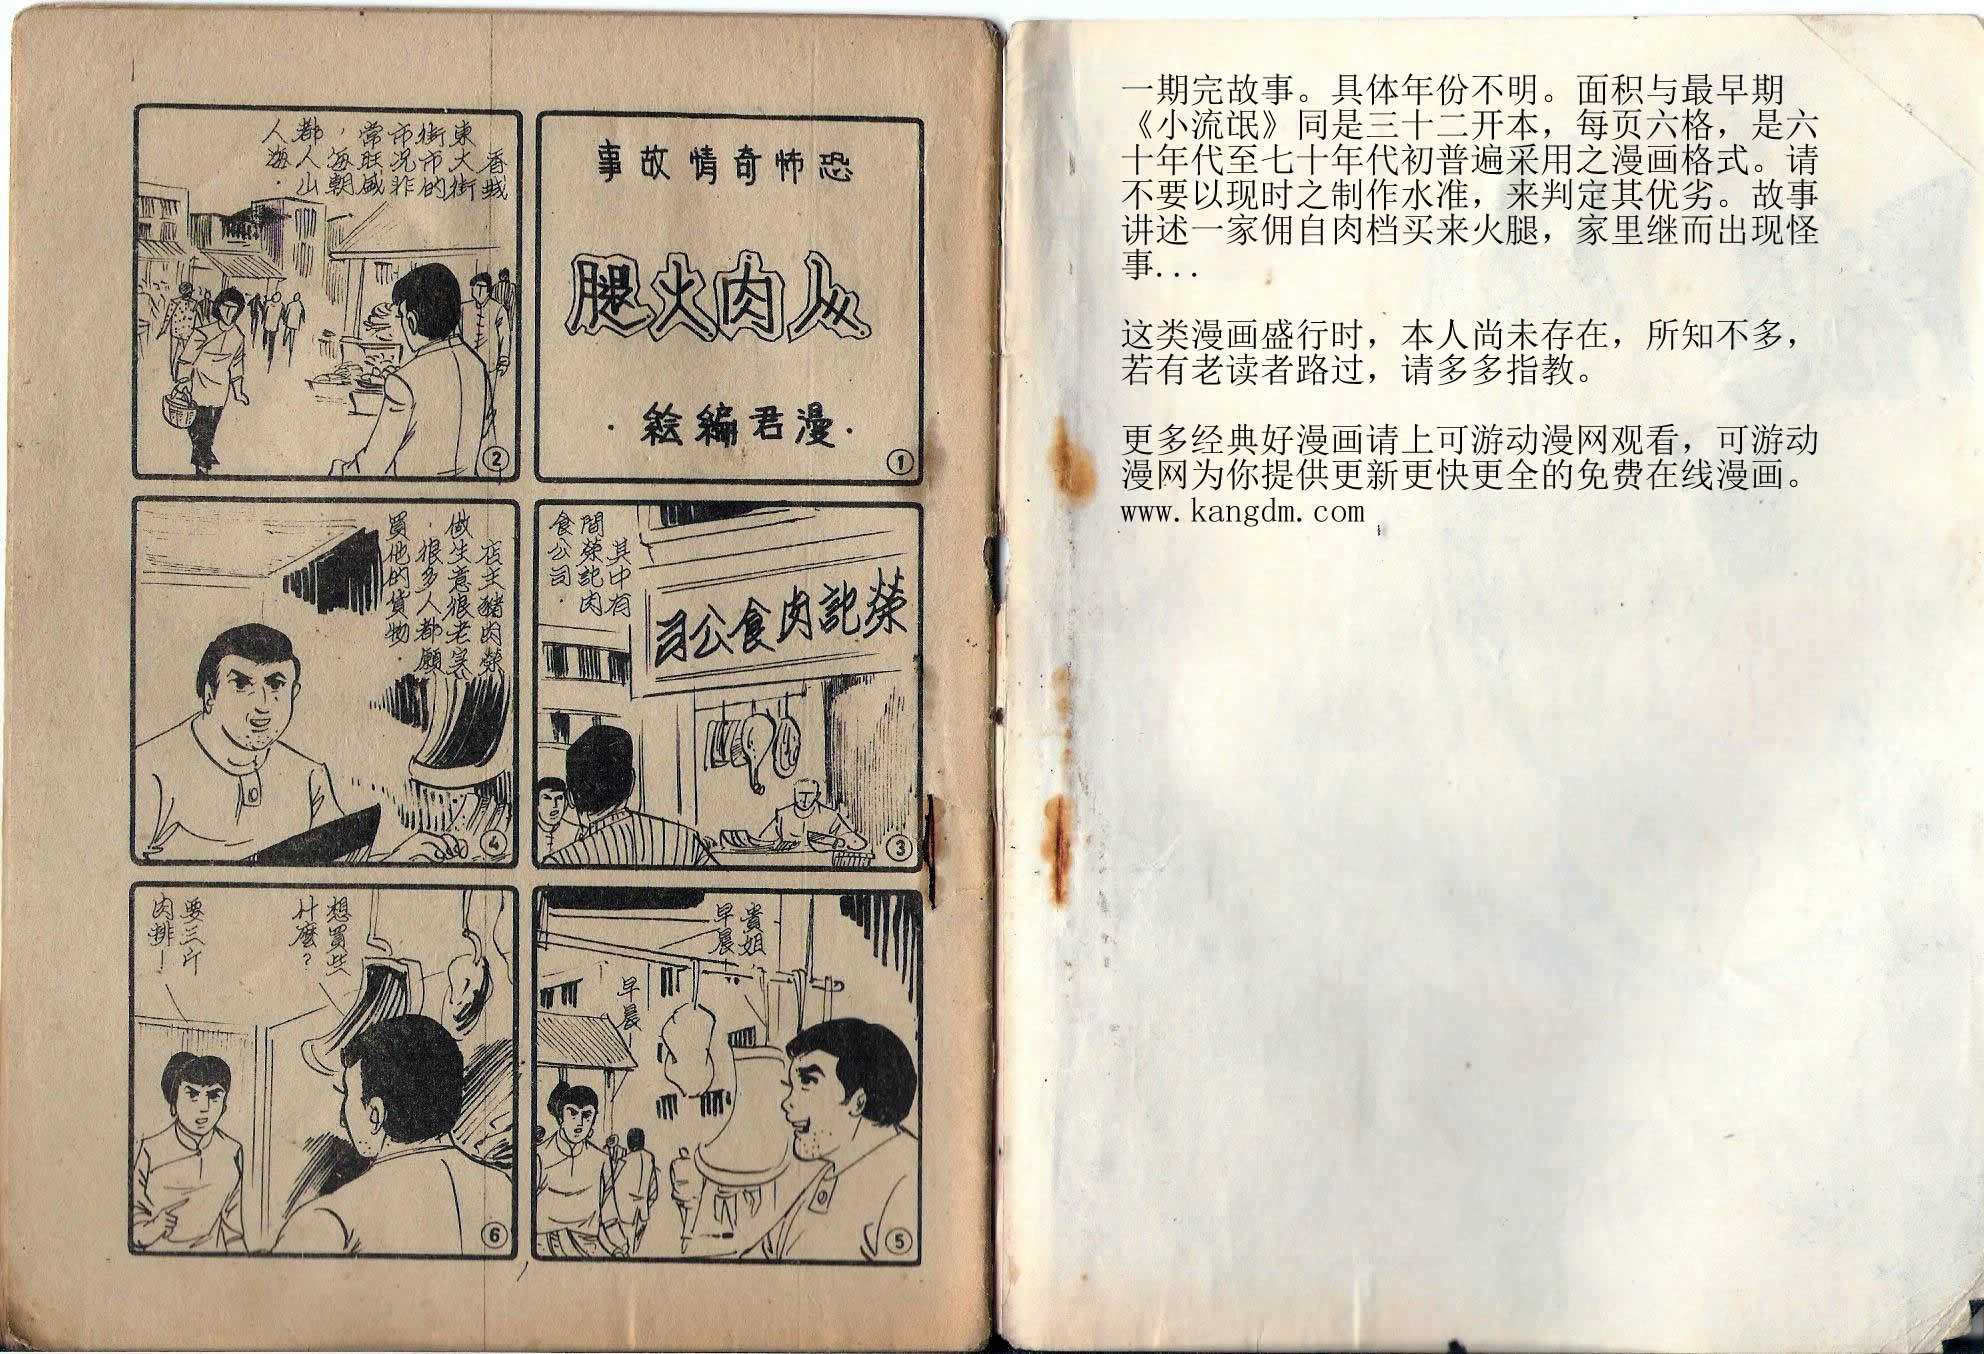 恐怖奇情故事
人肉火腿
·漫君編絵·
①
香城
東大街
街市的
市况非
常旺盛
，每朝
都人山
人海．
②
其中有
間榮記肉
食公司．
榮記肉食公司
③
店主豬肉榮
做生意很老实
．很多人都願
買他的貨物．
④
貴姐
早晨
早晨
⑤
想買些
什麼？
要三斤
肉排！
⑥
一期完故事。具体年份不明。面积与最早期
《小流氓》同是三十二开本，每页六格，是六
十年代至七十年代初普遍采用之漫画格式。请
不要以现时之制作水准，来判定其优劣。故事
讲述一家佣自肉档买来火腿，家里继而出现怪
事...
这类漫画盛行时，本人尚未存在，所知不多，
若有老读者路过，请多多指教。
更多经典好漫画请上可游动漫网观看，可游动
漫网为你提供更新更快更全的免费在线漫画。
www.kangdm.com